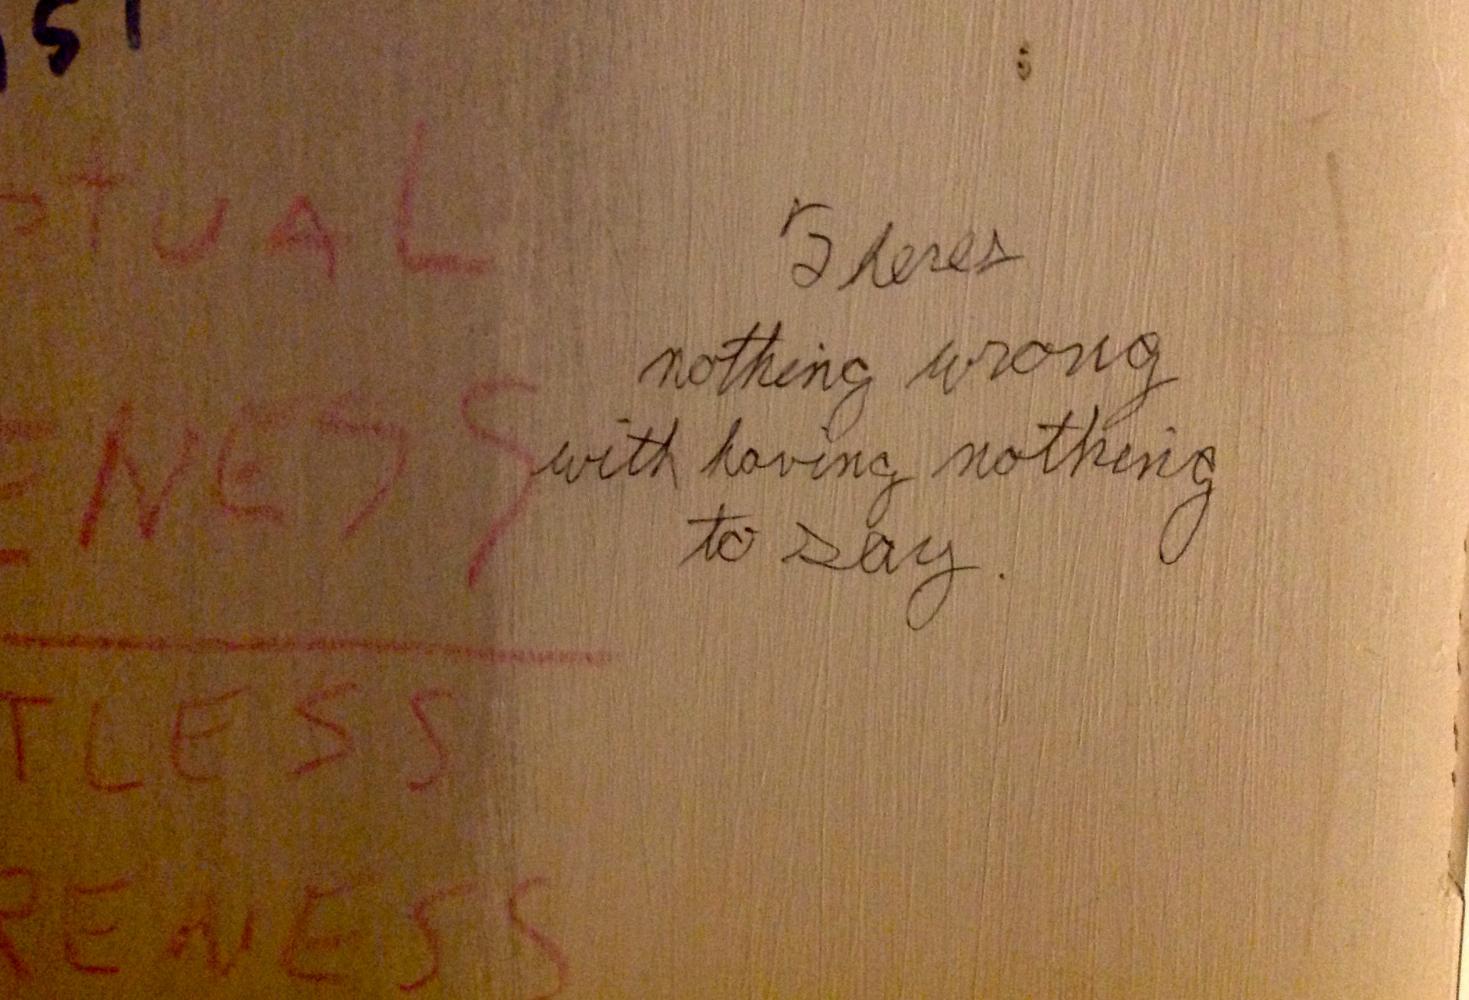 PTUAL
Theres
nothing wrong
ENESS
with having nothing
to say.
TLESS
RENESS